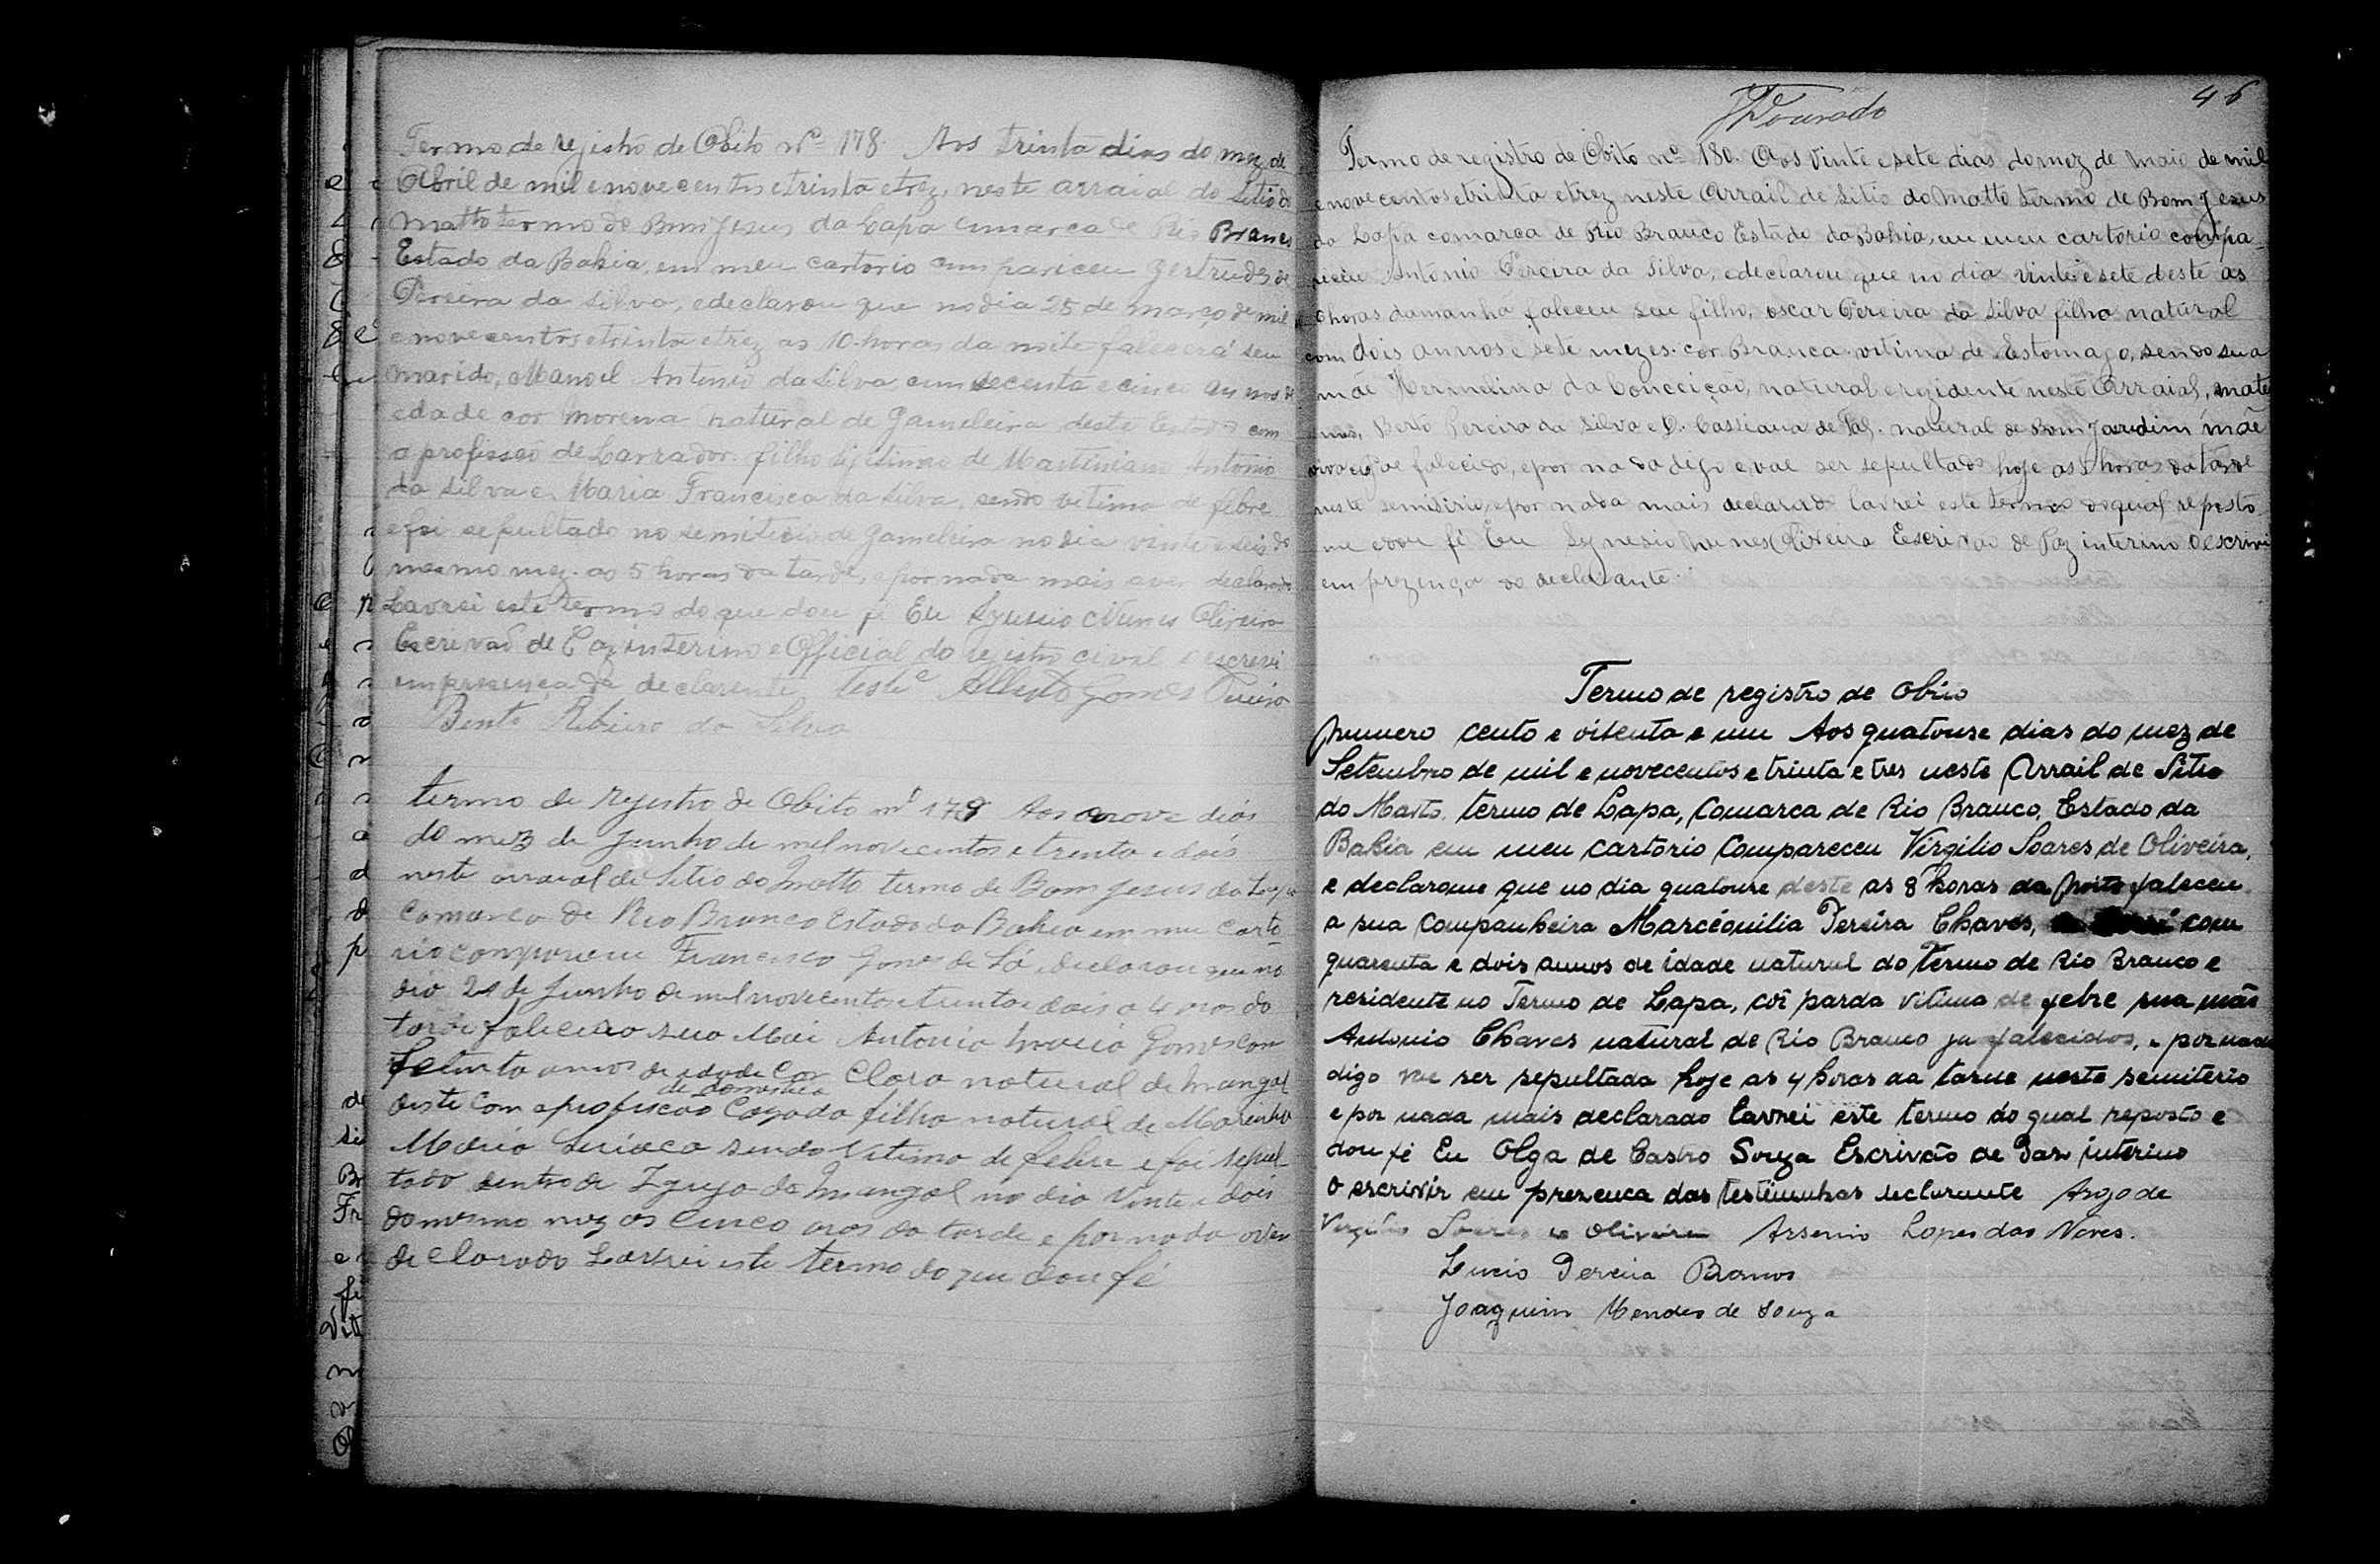 Termo de registro de Obito nº 178. Aos trinta dias do mez de
Abril de mil e novecentos e trinta e trez, neste arraial do Sitio do
Matto termo de Bom Jesus da Lapa comarca de Rio Branco
Estado da Bahia, em meu cartorio compariceu Gertrudes de
Pereira da Silva, e declarou que no dia 25 de março de mil
e novecentos e trinta e trez as 10 horas da noite falecera seu
marido, Manoel Antonio da Silva, com secenta e cinco annos de
edade cor morena natural de Gameleira deste Estado com
a profissão de Lavrador. filho lijitimo de Martiniano Antonio
da Silva e Maria Francisca da Silva, sendo vitima de febre
e foi sepultado no semiterio de Gameleira no dia vinte e seis do
mesmo mez. as 5 horas da tarde, e por nada mais aver declarado
Lavrei este termo do que dou fé Eu Synesio Nunes Oliveira
Escrivão de Paz interino e Official do registro civil o escrevi
em presença da declarente, teste Alberto Gomes
Bento Ribeiro da Silva
termo de rejistro de Obito nº 179 Aos nove dias
do mez de Junho de mil novecentos e trinta e dois
neste arraial de Sitio do Matto termo de Bom Jesus da Lapa
Comarca de Rio Branco Estado da Bahia em meu Carto-
rio compareceu Francisco Gomes de Sá, declarou que no
dia 21 de Junho de mil novecentos e trinta e dois a 4 oras da
tarde faleceu sua Mãi Antonia Maria Gomes com
annos de edade Cor Clara natural de Mangal
de domestica
deste com a profiscão Cazada filha natural de Marinha
Maria sendo Vitima de febre e foi sepul-
tado dentro da Igreja do Mangal no dia Vinte e dois
do mesmo mez as Cinco oras da tarde e por nada aver
declarado Lavrei este termo do que dou fé
46
JDourado
Termo de registro de Obito nº 180. Aos vinte e sete dias do mez de maio de mil
e novecentos e trinta e trez neste Arrail de Sitio do Matto termo de Bom Jesus
da Lapa comarca de Rio Branco Estado da Bahia, em meu cartorio compa-
receu Antonio Pereira da Silva, e declarou que no dia vinte e sete deste as
horas da manhã faleceu seu filho, oscar Pereira da Silva filho natural
com dois annos e sete mezes. cor Branca. vitima de Estomago, sendo sua
mãe Hermelina da Conceição, natural e rezidente neste Arraial, mate
Berto Pereira da Silva e D. Cassiana de Tal. natural de Bom Jardim mãe
viva e falecido, e por nada digo e vae ser sepultado hoje as 5 horas da tarde
neste semiterio, e por nada mais declarado lavrei este termo do qual reposto
me e dou fé Eu Synesio Nunes Oliveira Escrivão de Paz interino o escrivi
em prezença do declarante.
Termo de registro de Obito
Numero cento e oitenta e um Aos quatouse dias do mez de
Setembro de mil e novecentos e trinta e tres neste Arrail de Sitio
do Matto. termo de Lapa, Comarca de Rio Branco, Estado da
Bahia em meu cartorio Compareceu Virgilio Soares de Oliveira,
e declaroue que no dia quatouse deste as 8 horas da Noite faleceu
a sua Companheira Marcéonilia Pereira Chaves, com
quarenta e dois annos de idade natural do Termo de Rio Branco e
residente no Termo de Lapa, côr parda vitima de febre sua mãe
Antonio Chaves natural de Rio Branco ja falecidos, e por nada
digo vae ser sepultada hoje as 4 horas da tarde neste semiterio
e por nada mais declarado lavrei este termo do qual reposto e
dou fé Eu Olga de Castro Souza Escrivão de Paz interino
o escrivir em prezenca das testimunhas declarante Arogo de
Virgilio Soares de Oliveira Arsenio Lopes das Neves.
Lucio Pereira Ramos
Joaquim Mendes de Souza